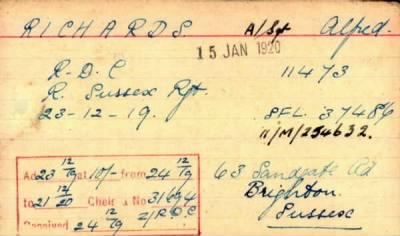 RICHARDS. A/Sgt Alfred.
15 JAN 1920
R.D.C 11473
R. Sussex Rgt.
23-12-19. SFL. 37486
11/M/254632.
Ad 23 12/19 at 10/- from 24 12/19
to 21 12/20 Chelsea No 31694
Z/R.D.C
Received 24 12/19
63 Sandgate Rd
Brighton
Sussex